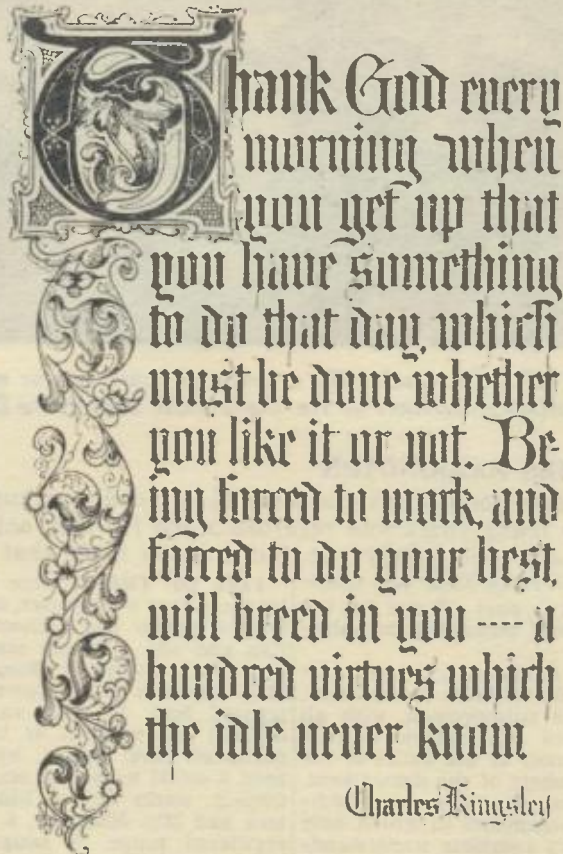 Thank God every
morning when
you get up that
you have something
to do that day, which
must be done whether
you like it or not. Be-
ing forced to work, and
forced to do your best,
will breed in you ---- a
hundred virtues which
the idle never know.
Charles Kingsley